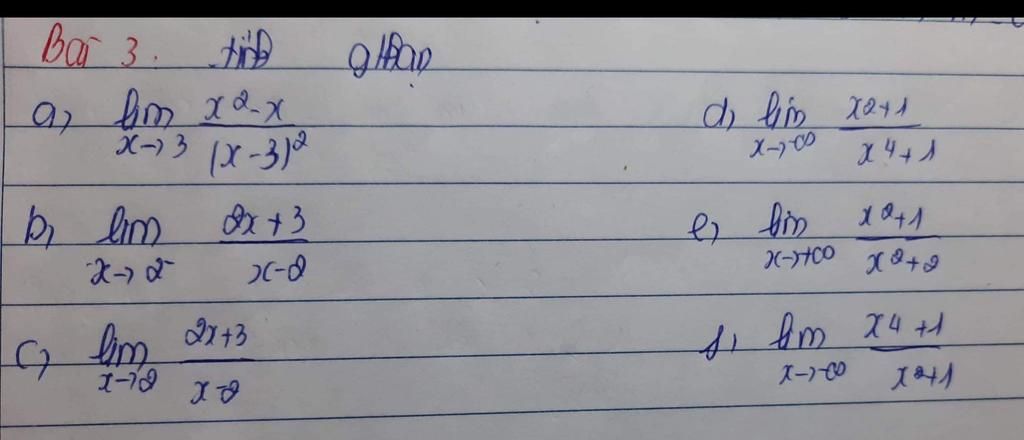 Bài 3. tính giới hạn
a, lim x→3 (x²-x)/((x-3)²)
b, lim x→2⁻ (2x+3)/(x-2)
c, lim x→2 (2x+3)/(x-2)
d, lim x→-∞ (x²+1)/(x⁴+1)
e, lim x→+∞ (x²+1)/(x²+2)
f, lim x→-∞ (x⁴+1)/(x²+1)